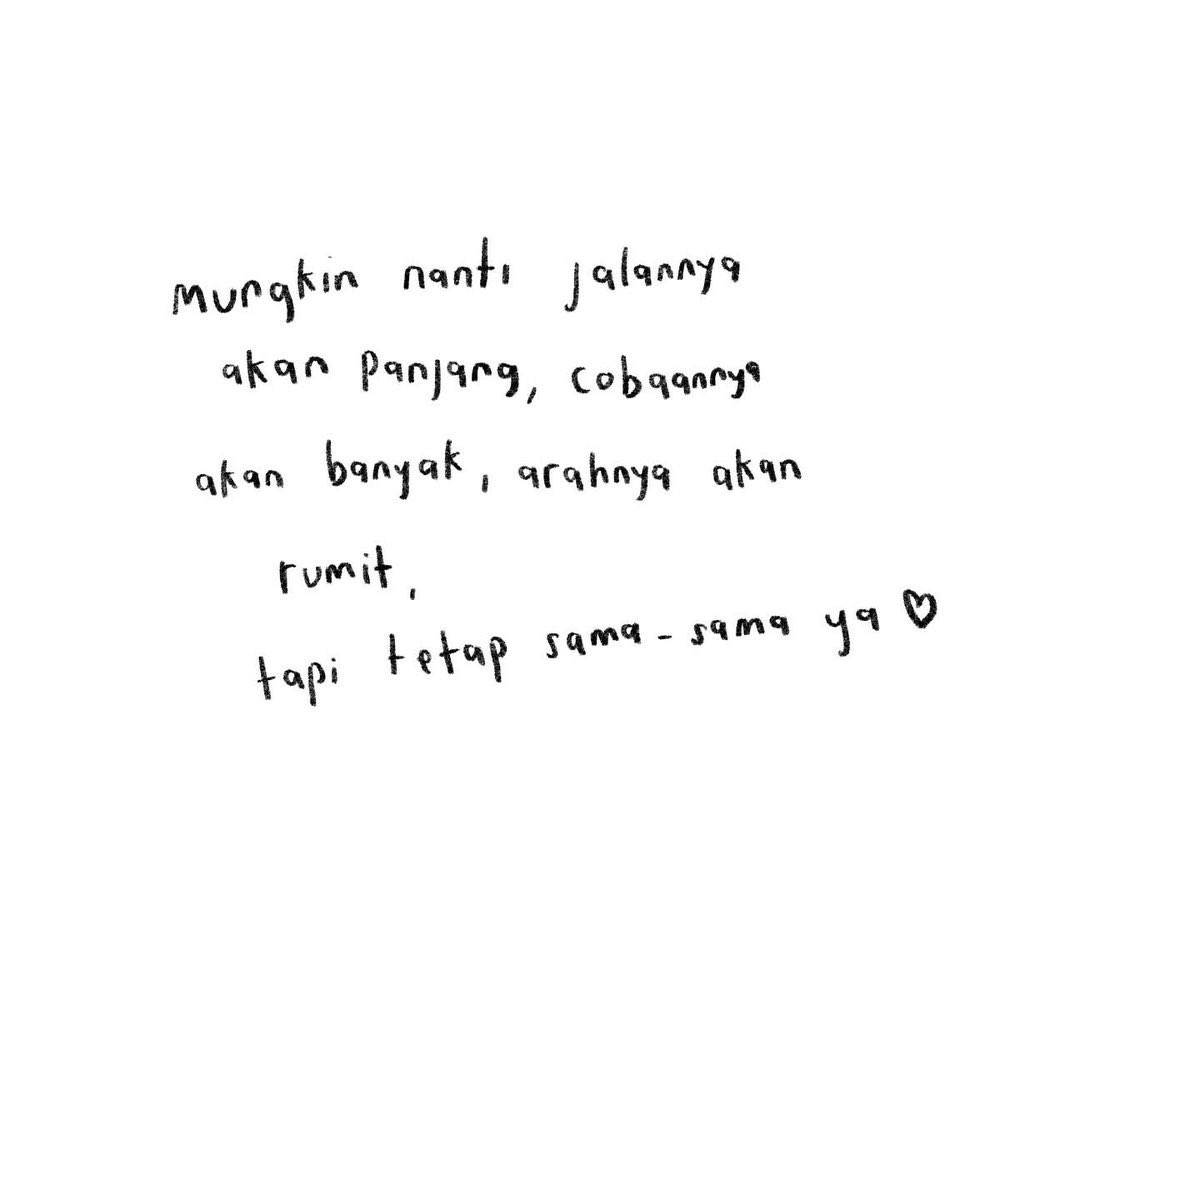 mungkin nanti jalannya
akan panjang, cobaannya
akan banyak, arahnya akan
rumit,
tapi tetap sama-sama ya ♡